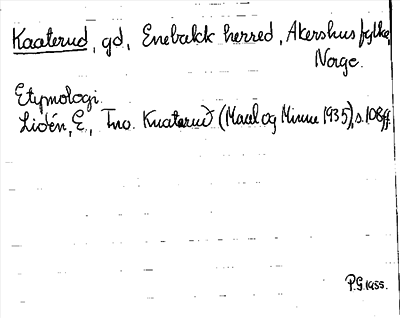 Kaaterud, gd, Enebakk herred, Akershus fylke,
Norge.
Etymologi.
Lidén, E., Tno. Knaterud (Maal og Minne 1935), s. 108ff.
P.G. 1955.